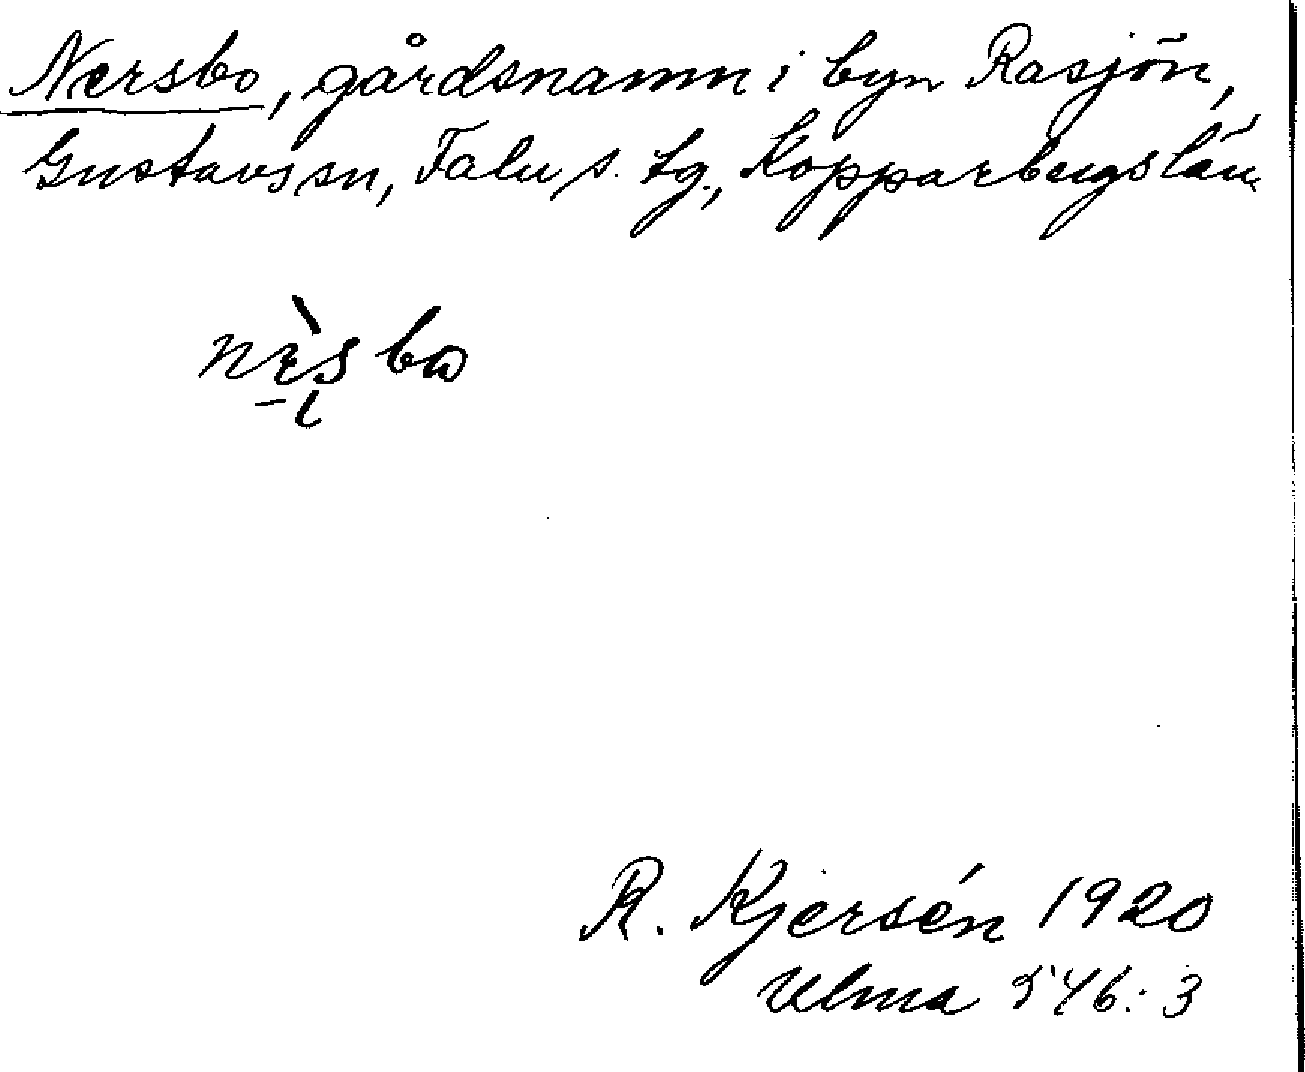 Nersbo, gårdsnamn i byn Rasjön,
Gustavs sn, Falu s. tg., Kopparbergs län.
R. Kjersén 1920
Ulma 546:3